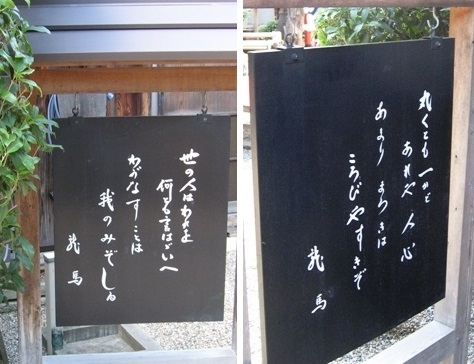 世の人はわれを
何とも言はゞいへ
わがなすことは
我のみぞしる
龍馬
丸くとも一かど
あれや人心
あまりまろきは
ころびやすきぞ
龍馬